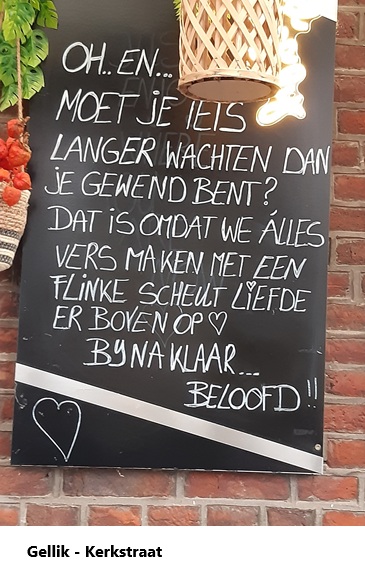 OH.. EN...
MOET JE IETS
LANGER WACHTEN DAN
JE GEWEND BENT?
DAT iS OMDAT WE ÁLLES
VERS MAKEN MET EEN
FLINKE SCHEUT LIEFDE
ER BOVEN OP ♡
BIJNA KLAAR...
BELOOFD!!
Gellik - Kerkstraat